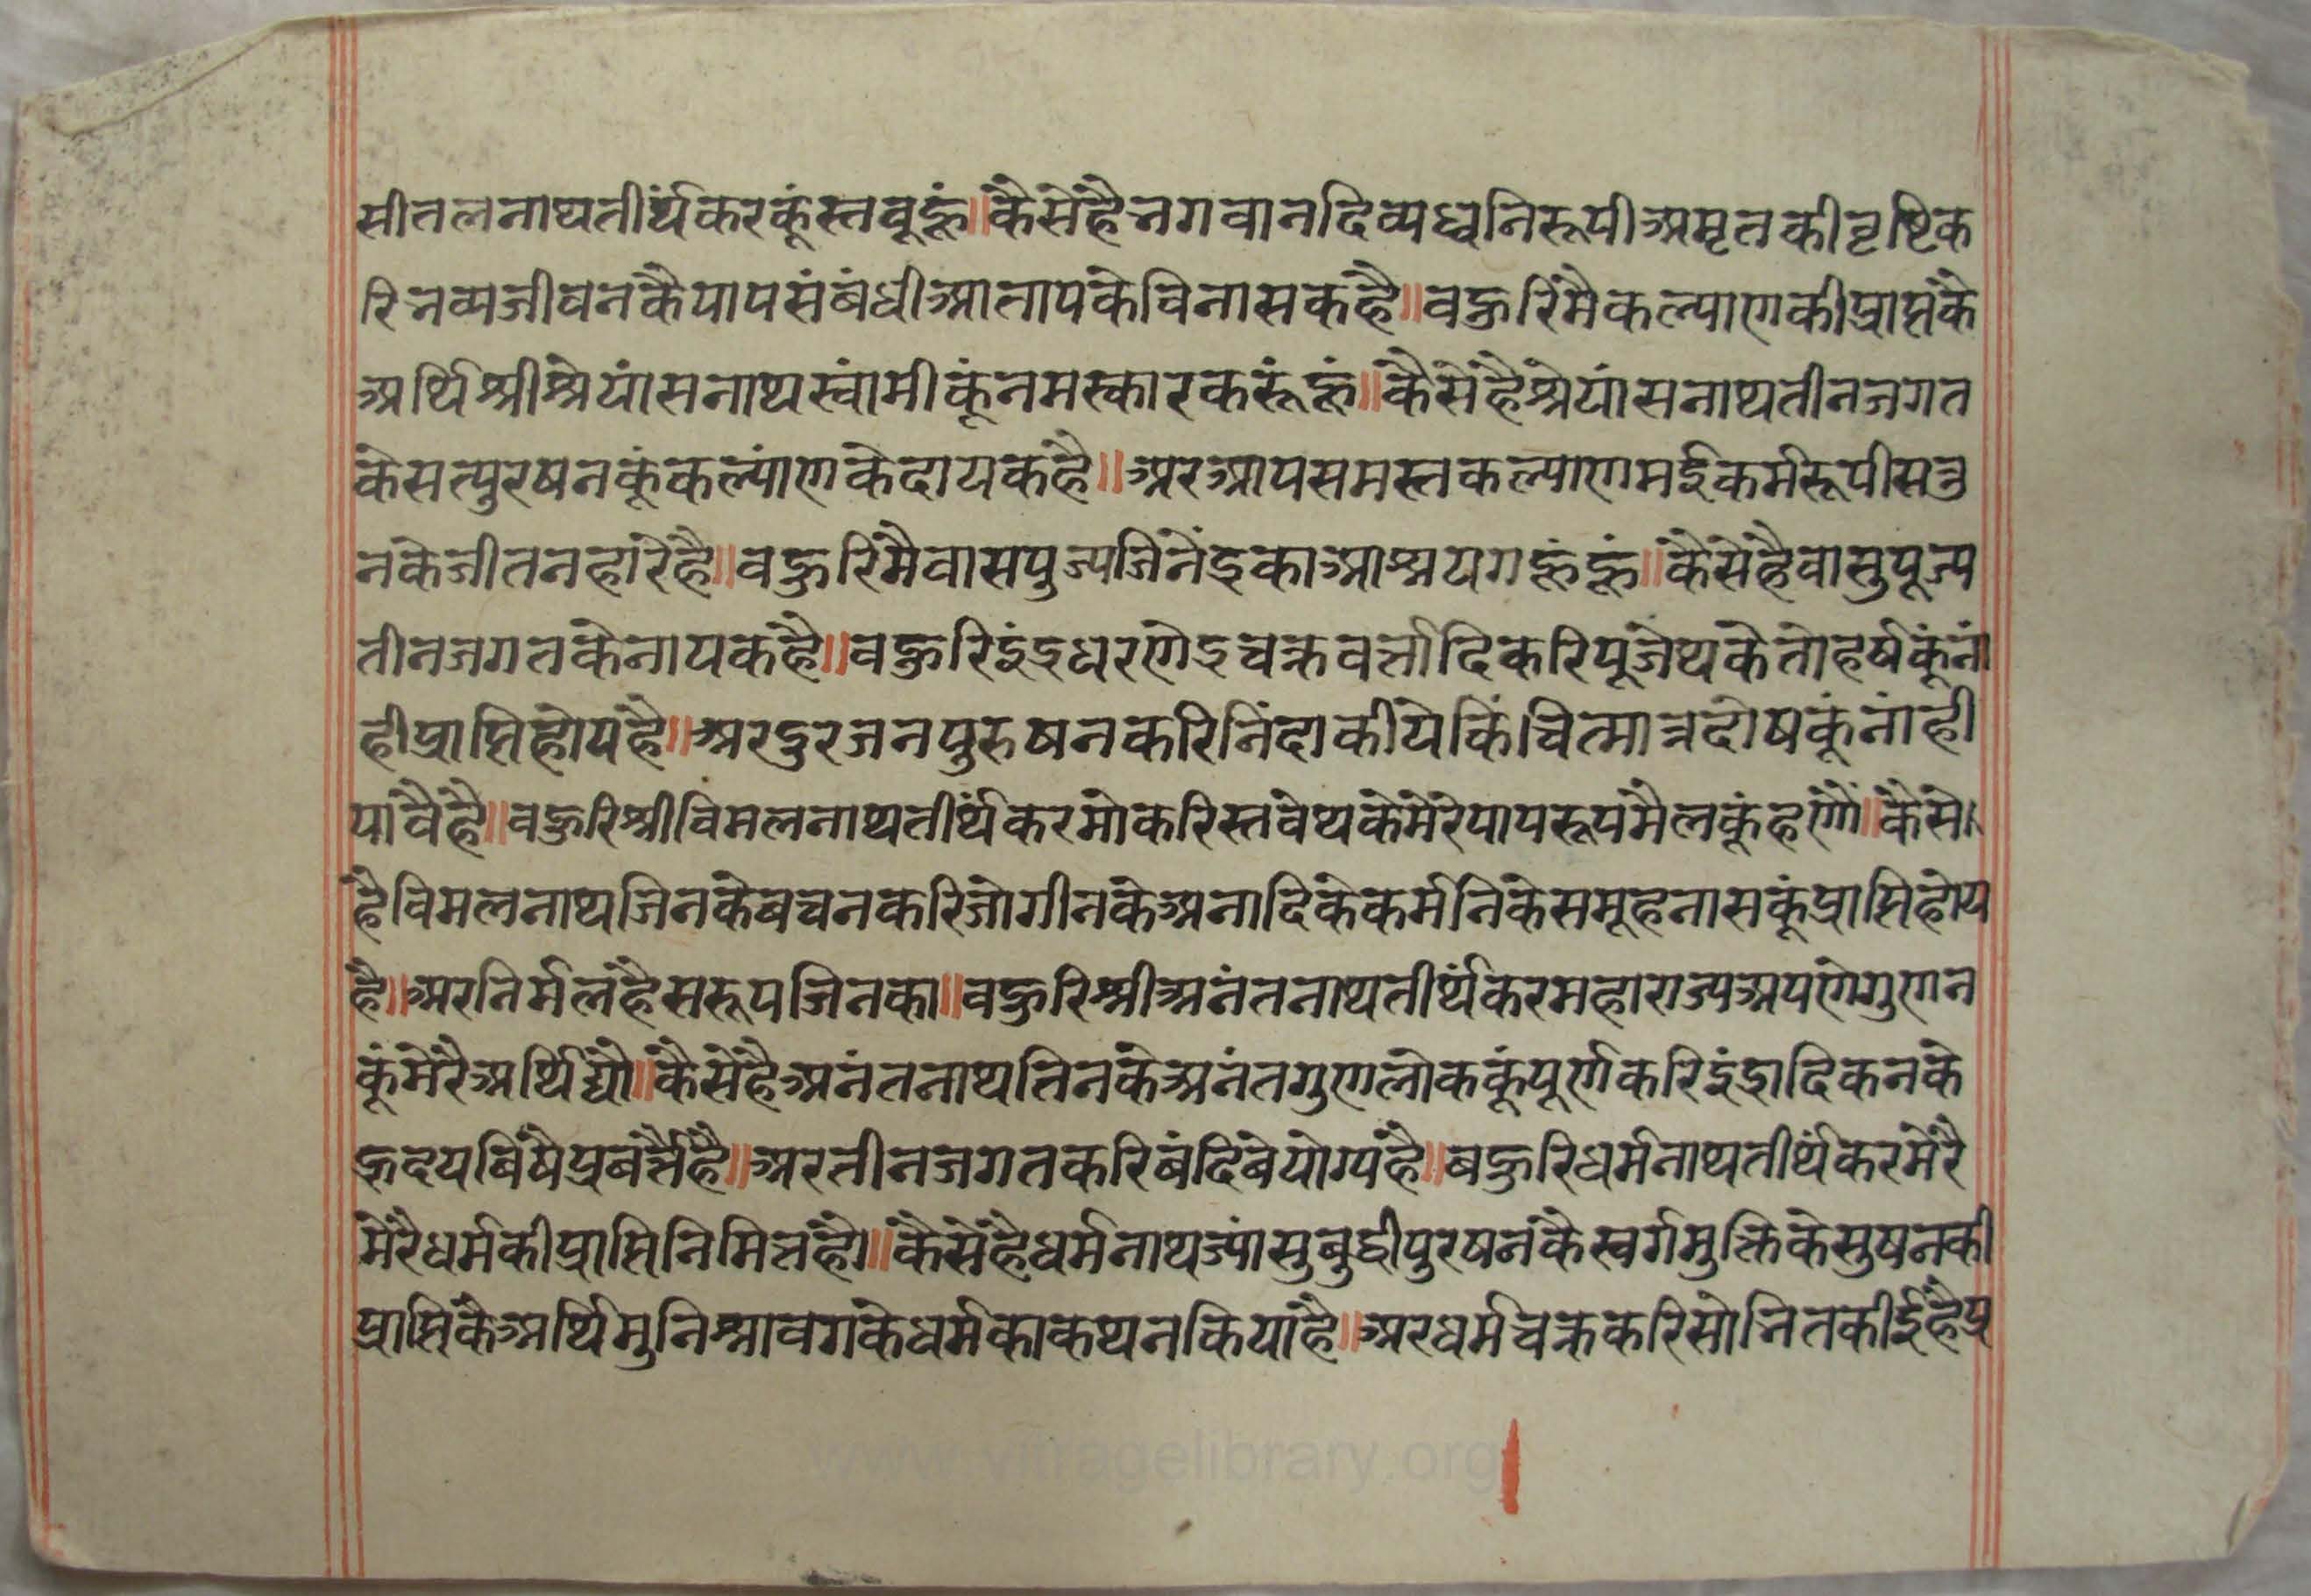 सीतलनाथतीर्थंकरकूंस्तवूहूं॥कैसेहैभगवानदिव्यध्वनिरूपीअमृतकीवृष्टिक
रिभव्यजीवनकैपापसंबंधीआतापकेविनासकहै॥वहुरिमैकल्याणकीप्राप्तकै
अर्थिश्रीश्रेयांसनाथस्वांमीकूंनमस्कारकरूंहूं॥कैसेहैश्रेयांसनाथतीनजगत
केसत्पुरषनकूंकल्यांणकेदायकहै॥अरआपसमस्तकल्याणमईकर्मरूपीसत्रु
नकेजीतनहारेहै॥वहुरिमैवासपुज्यजिनेंद्रकाआश्रयगहूंहूं॥कैसेहैवासुपूज्य
तीनजगतकेनायकहै॥वहुरिइंद्रधरणेंद्रचक्रवर्त्तादिकरिपूजेथकेतोहर्षकूंनां
हीप्राप्तिहोयहै॥अरदुरजनपुरुषनकरिनिंदाकीयेकिंचित्मात्रदोषकूंनांही
पावैहै॥वहुरिश्रीविमलनाथतीर्थंकरमोकरिस्तवेथकेमेरेपापरूपमैलकूंहणौं॥कैसे।
हैविमलनाथजिनकेबचनकरिजोगीनकेअनादिकेकर्मनिकेसमूहनासकूंप्राप्तिहोय
है॥अरनिर्मलहैसरूपजिनका॥वहुरिश्रीअनंतनाथतीर्थंकरमहाराज्यअपणेगुणन
कूंमेरैअर्थिद्यौ॥कैसेहैअनंतनाथतिनकेअनंतगुणलोककूंपूर्णकरिइंद्रादिकनके
ह्रदयबिषैप्रबर्त्तैहै॥अरतीनजगतकरिबंदिबेयोग्यहै॥बहुरिधर्मनाथतीर्थंकरमेरै
मेरैधर्मकीप्राप्तिनिमित्तहो॥कैसेहैधर्मनाथज्यांसुबुद्दीपुरषनकैस्वर्गमुक्तिकेसुषनकी
प्राप्तिकैअर्थिमुनिश्रावगकेधर्मकाकथनकियाहै॥अरधर्मचक्रकरिसोभितकीईहैप्र
www.vitragelibrary.org